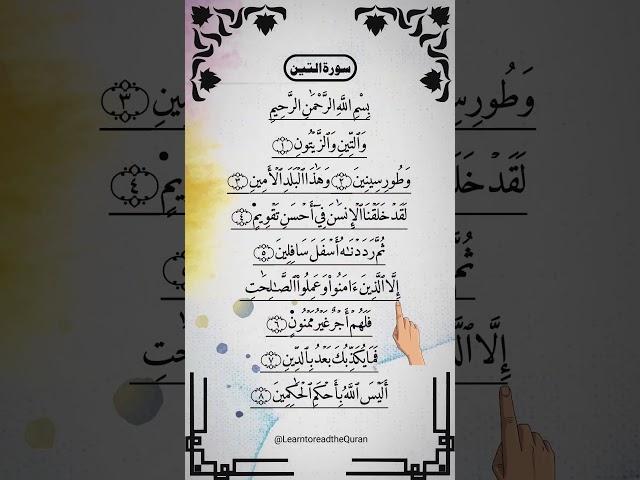 سورة التين
بِسْمِ اللَّهِ الرَّحْمَٰنِ الرَّحِيمِ
وَالتِّينِ وَالزَّيْتُونِ ١
وَطُورِ سِينِينَ ٢ وَهَٰذَا الْبَلَدِ الْأَمِينِ ٣
لَقَدْ خَلَقْنَا الْإِنسَٰنَ فِي أَحْسَنِ تَقْوِيمٍ ٤
ثُمَّ رَدَدْنَٰهُ أَسْفَلَ سَافِلِينَ ٥
إِلَّا الَّذِينَ ءَامَنُوا وَعَمِلُوا الصَّٰلِحَٰتِ
فَلَهُمْ أَجْرٌ غَيْرُ مَمْنُونٍ ٦
فَمَا يُكَذِّبُكَ بَعْدُ بِالدِّينِ ٧
أَلَيْسَ اللَّهُ بِأَحْكَمِ الْحَٰكِمِينَ ٨
@LearntoreadtheQuran